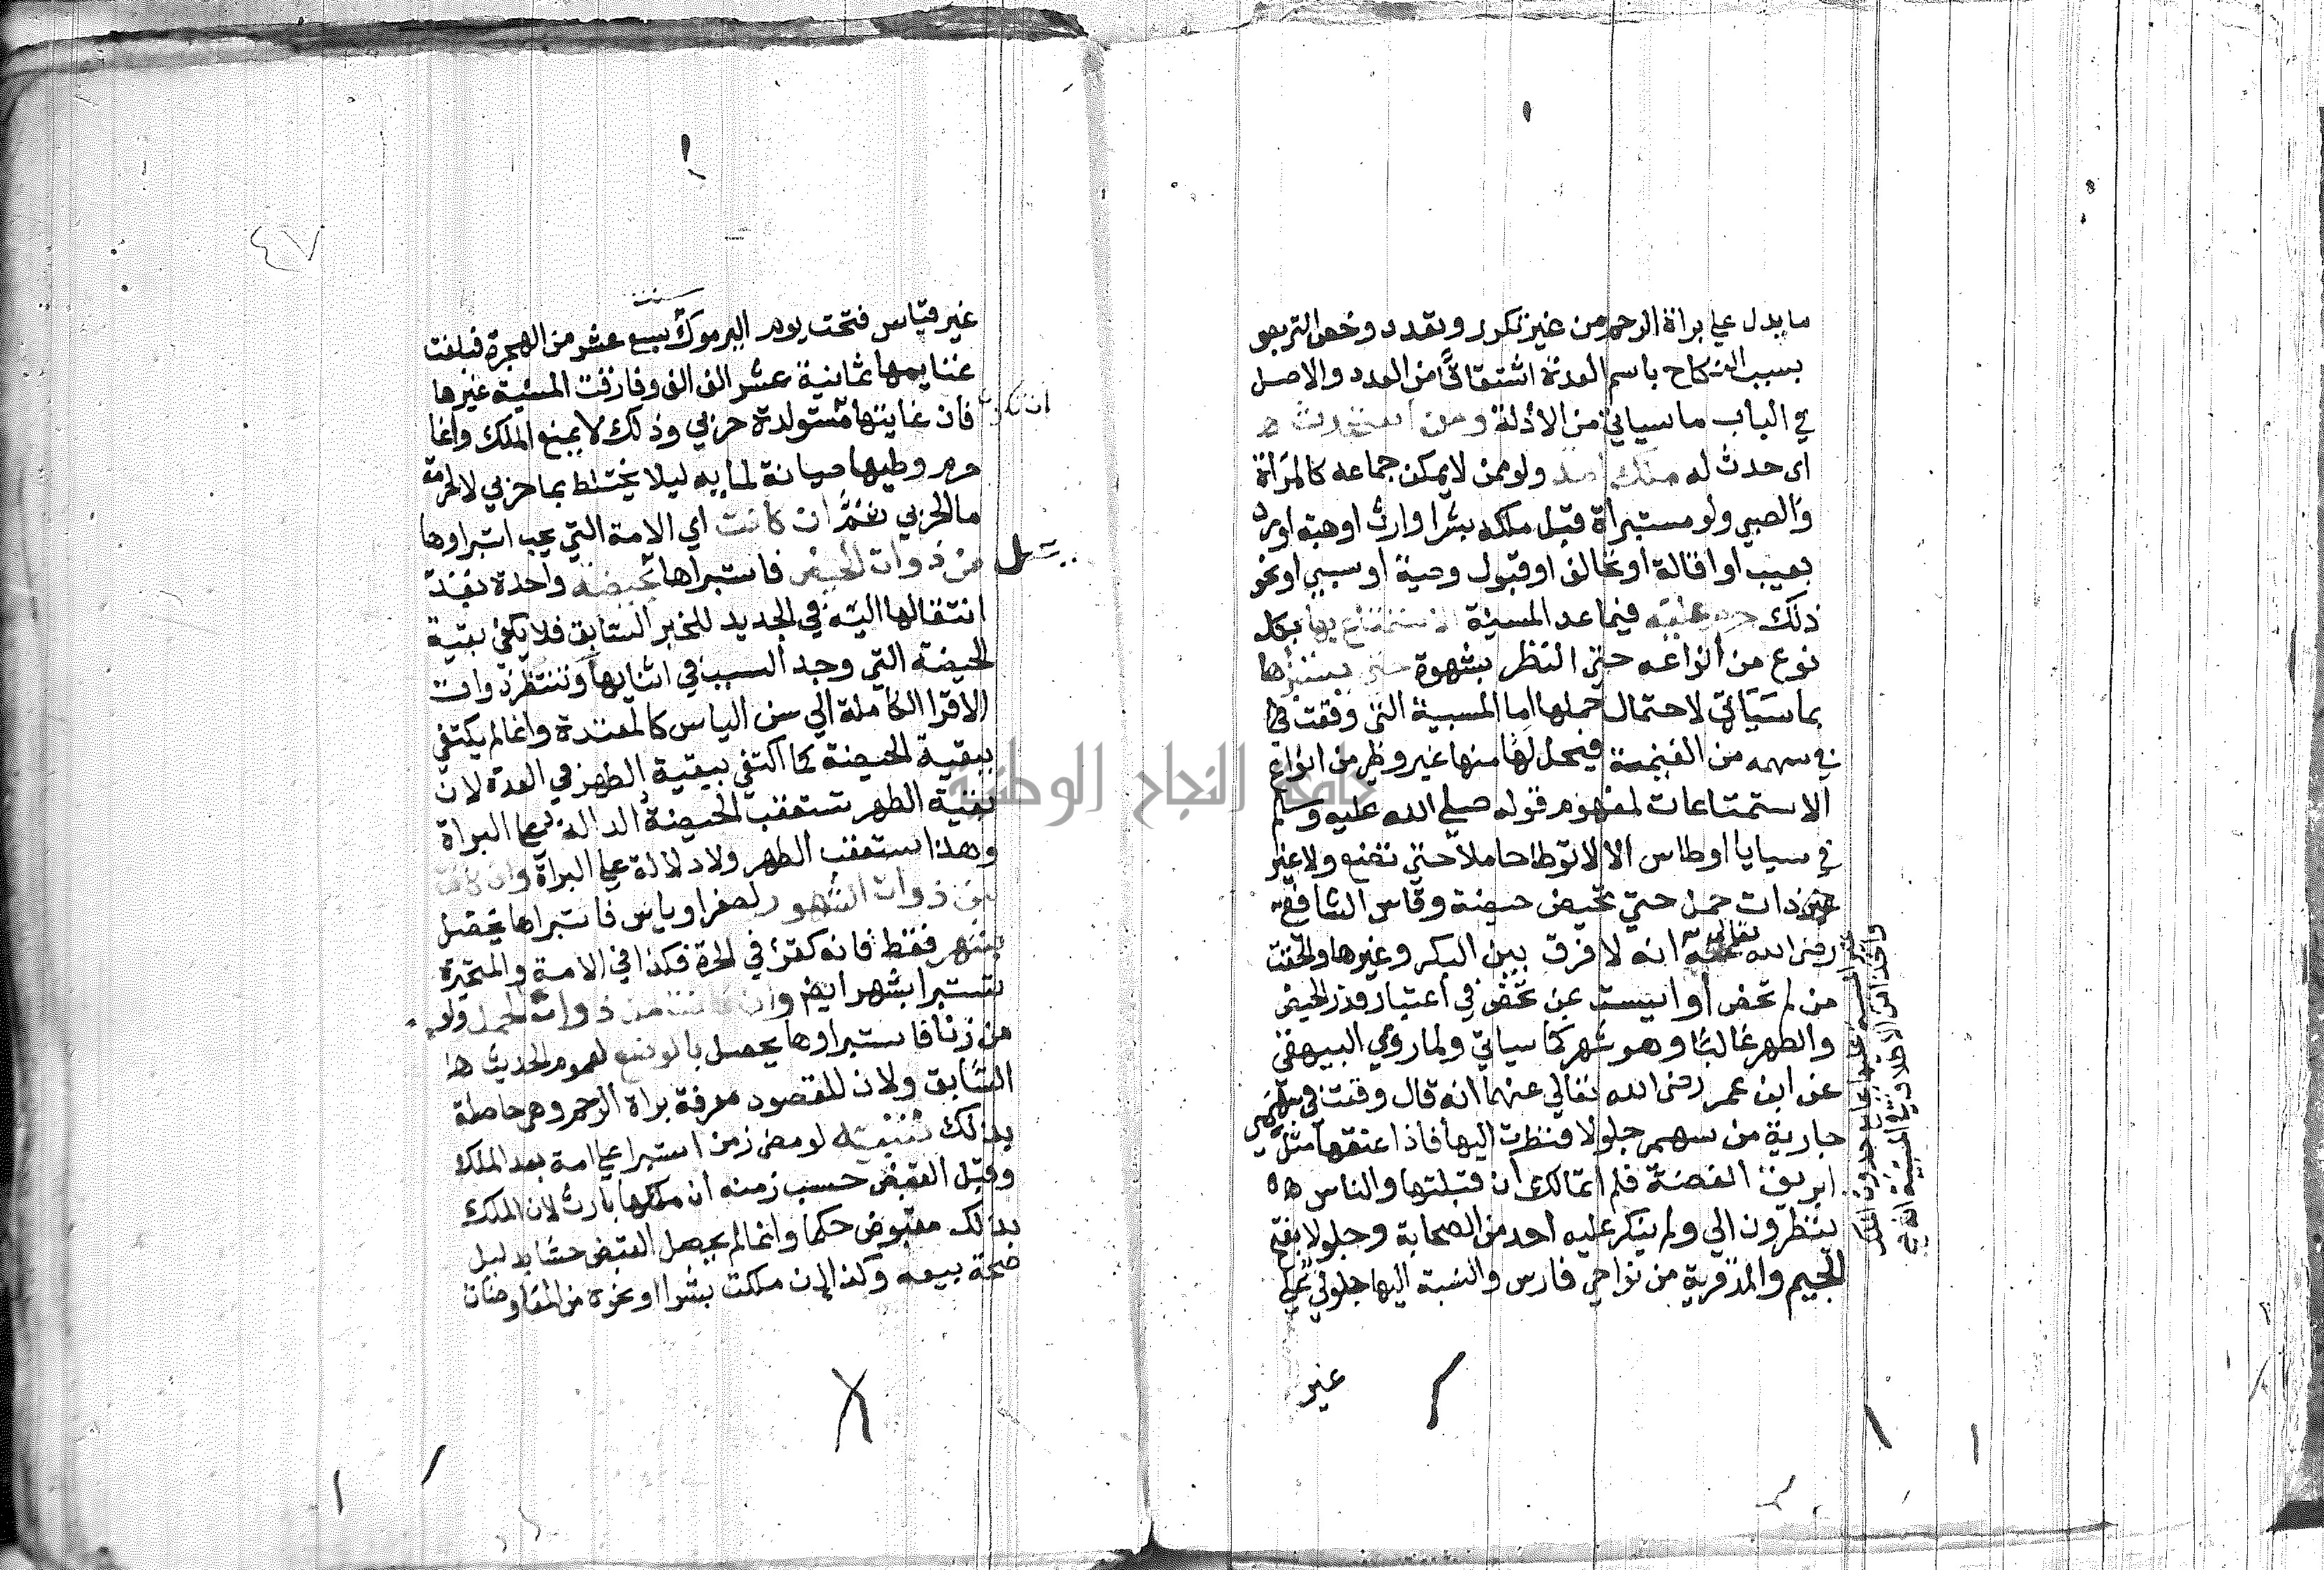 ما يدل علي براة الرحم من غير تكرر وتعدد وخص التربص
بسبب النكاح باسم العدة اشتقاقا من العدد والاصل
في الباب ما سياتي من الادلة ومن استحدث
اي حدث له ملك امة ولو ممن لا يمكن جماعه كالمراة
والصبي ولو مستبراة قبل ملكه بشرا وارث او هبة او رد
بعيب او اقالة او تحالف او قبول وصية او سبي او نحو
ذلك حرم عليه فيما عدا المسبية الاستمتاع بها بكل
نوع من انواعه حتي النظر بشهوة حتي يستبراها
بما سياتي لاحتمال حملها اما المسبية التي وقعت
في سهمه من الغنيمة فيحل له منها غير وطي من انواع
الاستمتاعات لمفهوم قوله صلي الله عليه وسلم
في سبايا اوطاس الا لا توطا حامل حتي تضع ولا غير
ذات حمل حتي تحيض حيضة وقاس الشافعي
رضي الله تعالي عنه انه لا فرق بين البكر وغيرها والحقت
من لم تحض او ايست بمن تحض في اعتبار قدر الحيض
والطهر غالبا وهو شهر كما سياتي ولما روي البيهقي
عن ابن عمر رضي الله تعالي عنهما انه قال وقعت في سهمي
جارية من سهم جلولا فنظرت اليها فاذا عنقها مثل
ابريق الفضة فلم اتمالك ان قبلتها والناس
ينظرون الي ولم ينكر عليه احد من الصحابة وجلولا بفتح
الجيم والمد قرية من نواحي فارس والنسبة اليها جلولي علي
غير
٤٧
غير قياس فتحت يوم اليرموك سنة سبع عشر من الهجرة فبلغت
غنايمها ثمانية عشر الف الف وفارقت المسبية غيرها
فان غايتها ان تكون مستولدة حربي وذلك لا يمنع الملك وانما
حرم وطيها صيانة لمايه ليلا يختلط بما حربي لا لحرمة
ما الحربي ثم ان كانت اي الامة التي يجب استبراوها
من ذوات الحيض فاستبراها يحصل بحيضة واحدة بعد
انتقالها اليه في الجديد للخبر السابق فلا يكفي بقية
الحيضة التي وجد السبب في اثنايها وتنتظر ذوات
الاقرا الكاملة الي سن الياس كالمعتدة وانما لم يكتفي
ببقية الحيضة كما اكتفي ببقية الطهر في العدة لان
بقية الطهر تستعقب الحيضة الدالة علي البراة
وهذا يستعقب الطهر ولا دلالة علي البراة وان كانت
من ذوات الشهور لصغر او ياس فاستبراها يحصل
بشهر فقط فانه كقرء في الحرة فكذا في الامة والمتحيرة
تستبرا بشهر ايضا وان كانت من ذوات الحمل ولو
من زنا فاستبراوها يحصل بالوضع لعموم الحديث
السابق ولان المقصود معرفة براة الرحم وهي حاصلة
بذلك تنبيه لو مضي زمن استبرا علي امة بعد الملك
وقبل القبض حسب زمنه ان ملكها بارث لان الملك
بذلك مقبوض حكما وان لم يحصل القبض حسا بدليل
صحة بيعه وكذا ان ملكت بشرا او نحوه من المعاوضات